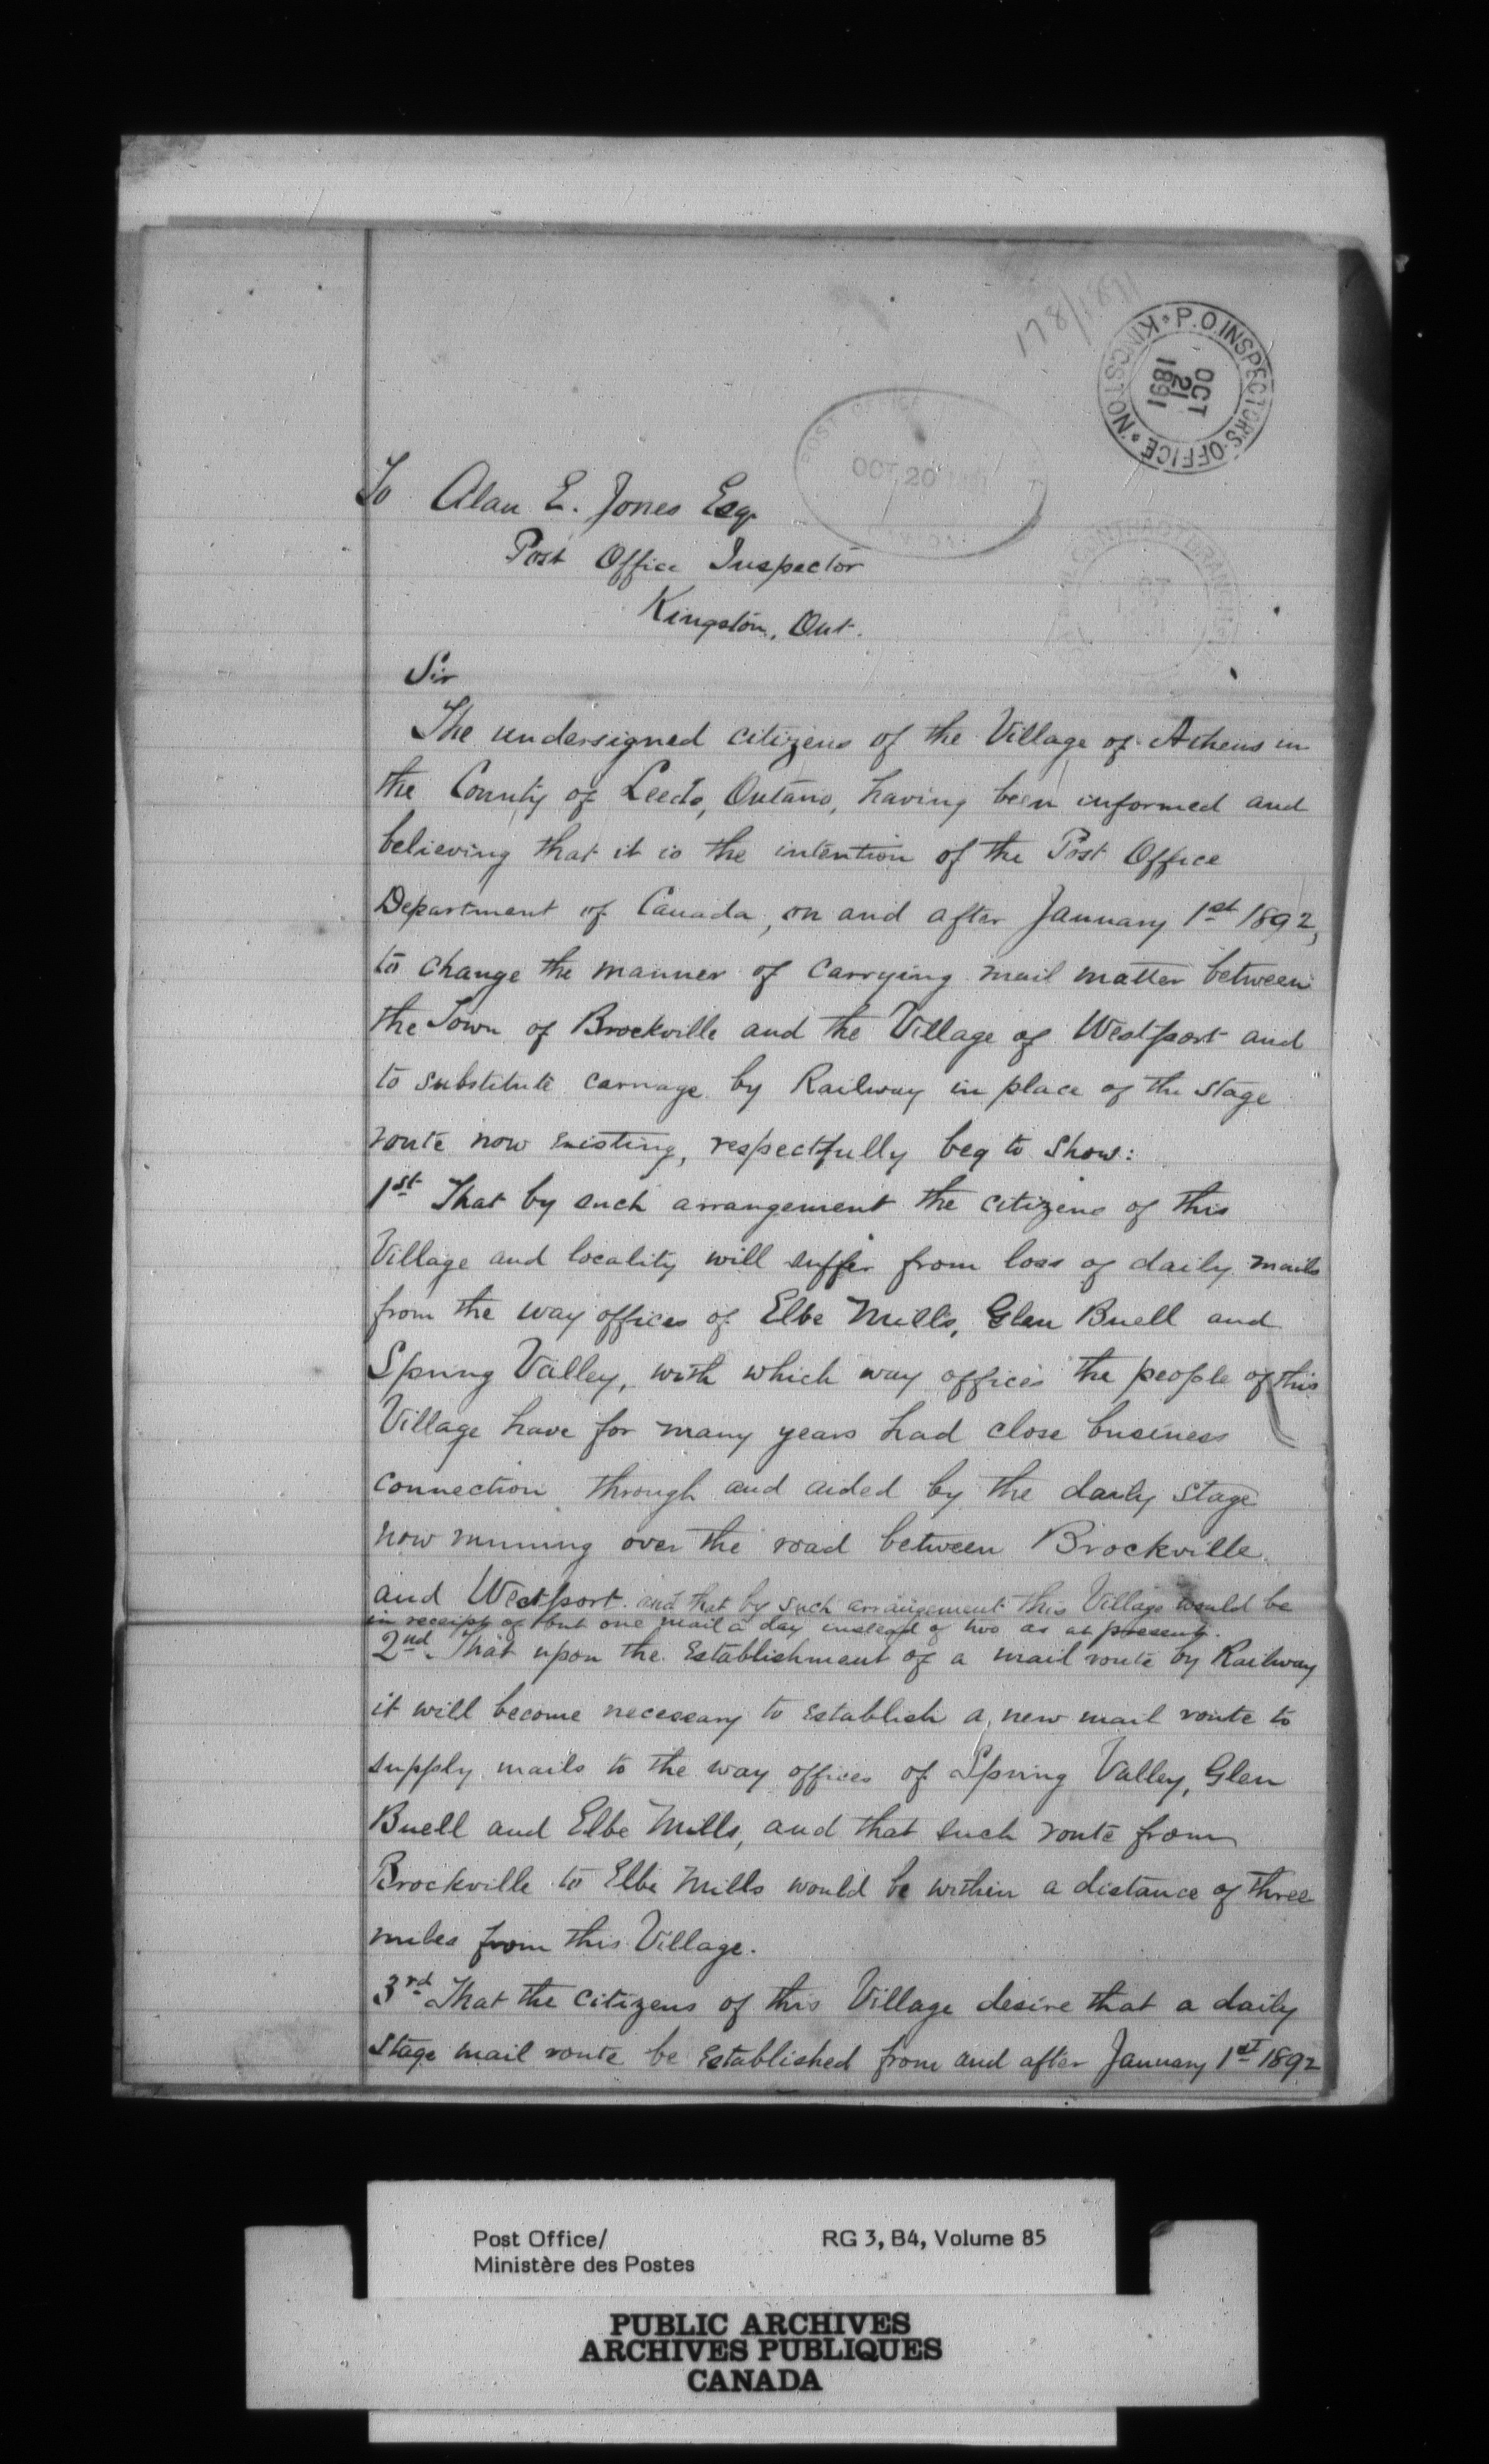 P.O. INSPECTOR'S OFFICE
KINGSTON
OCT
21
1891
POST OFFICE
OCT 20
CONTRACT BRANCH
To Alan E. Jones Esq.
Post Office Inspector
Kingston, Ont.
Sir
The undersigned citizens of the Village of Athens in
the County of Leeds, Ontario, having been informed and
believing that it is the intention of the Post Office
Department of Canada, on and after January 1st 1892,
to change the manner of carrying mail matter between
the Town of Brockville and the Village of Westport and
to substitute carriage by Railway in place of the stage
route now existing, respectfully beg to show:
1st That by such arrangement the citizens of this
Village and locality will suffer from loss of daily mails
from the way offices of Elbe Mills, Glen Buell and
Spring Valley, with which way offices the people of this
Village have for many years had close business
connection through and aided by the daily stage
now running over the road between Brockville
and Westport. and that by such arrangement this Village would be
in receipt of but one mail a day instead of two as at present.
2nd. That upon the establishment of a mail route by Railway
it will become necessary to establish a new mail route to
supply mails to the way offices of Spring Valley, Glen
Buell and Elbe Mills, and that such route from
Brockville to Elbe Mills would be within a distance of three
miles from this Village.
3rd That the citizens of this Village desire that a daily
stage mail route be established from and after January 1st 1892
Post Office/
Ministère des Postes
RG 3, B4, Volume 85
PUBLIC ARCHIVES
ARCHIVES PUBLIQUES
CANADA